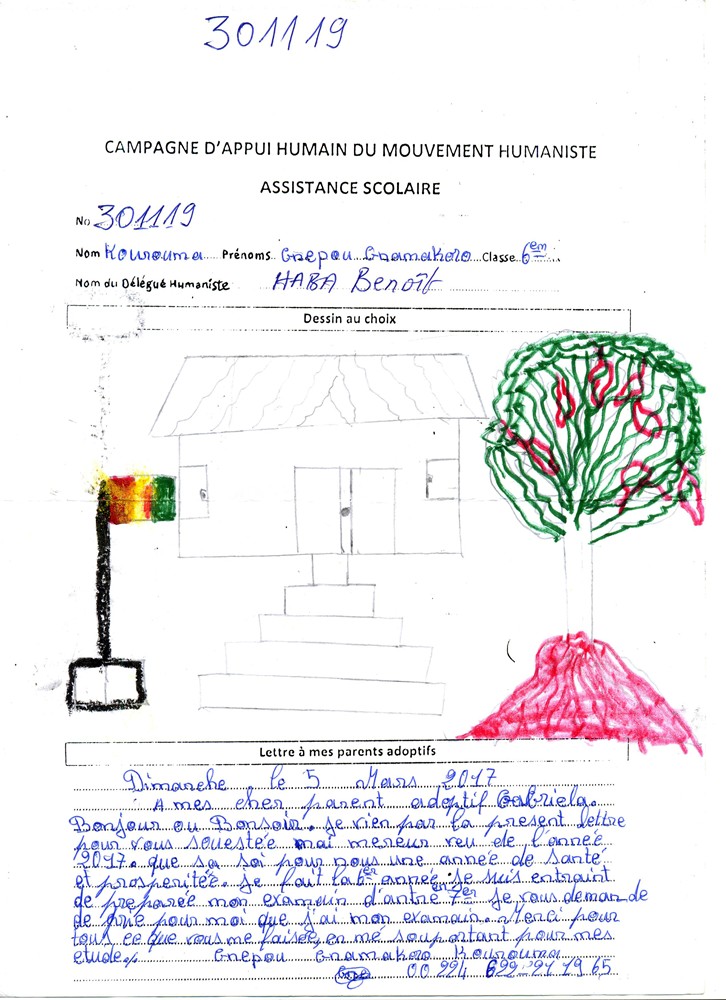 301119
CAMPAGNE D'APPUI HUMAIN DU MOUVEMENT HUMANISTE
ASSISTANCE SCOLAIRE
No 301119
Nom Kourouma Prénoms Gnepou Gnamakoro Classe 6em
Nom du Délégué Humaniste HABA Benoît
Dessin au choix
Lettre à mes parents adoptifs
Dimanche, le 5 Mars 2017
A mes cher parent adoptif Gabriela.
Bonjour ou Bonsoir. Je vien par la present lettre
pour vous souestée mai mereur veu de l'année
2017. que sa soi pour nous une année de santé
et prosperitée. Je fait la 6er année. Je suis entraint
de preparée mon examain d'antre en 7er je vous demande
de prié pour moi que j'ai mon examain. Merci pour
tous ce que vous me faisée, en me souportant pour mes
etude./. Gnepou Gnamakoro Kourouma
00 224 622 21 79 65